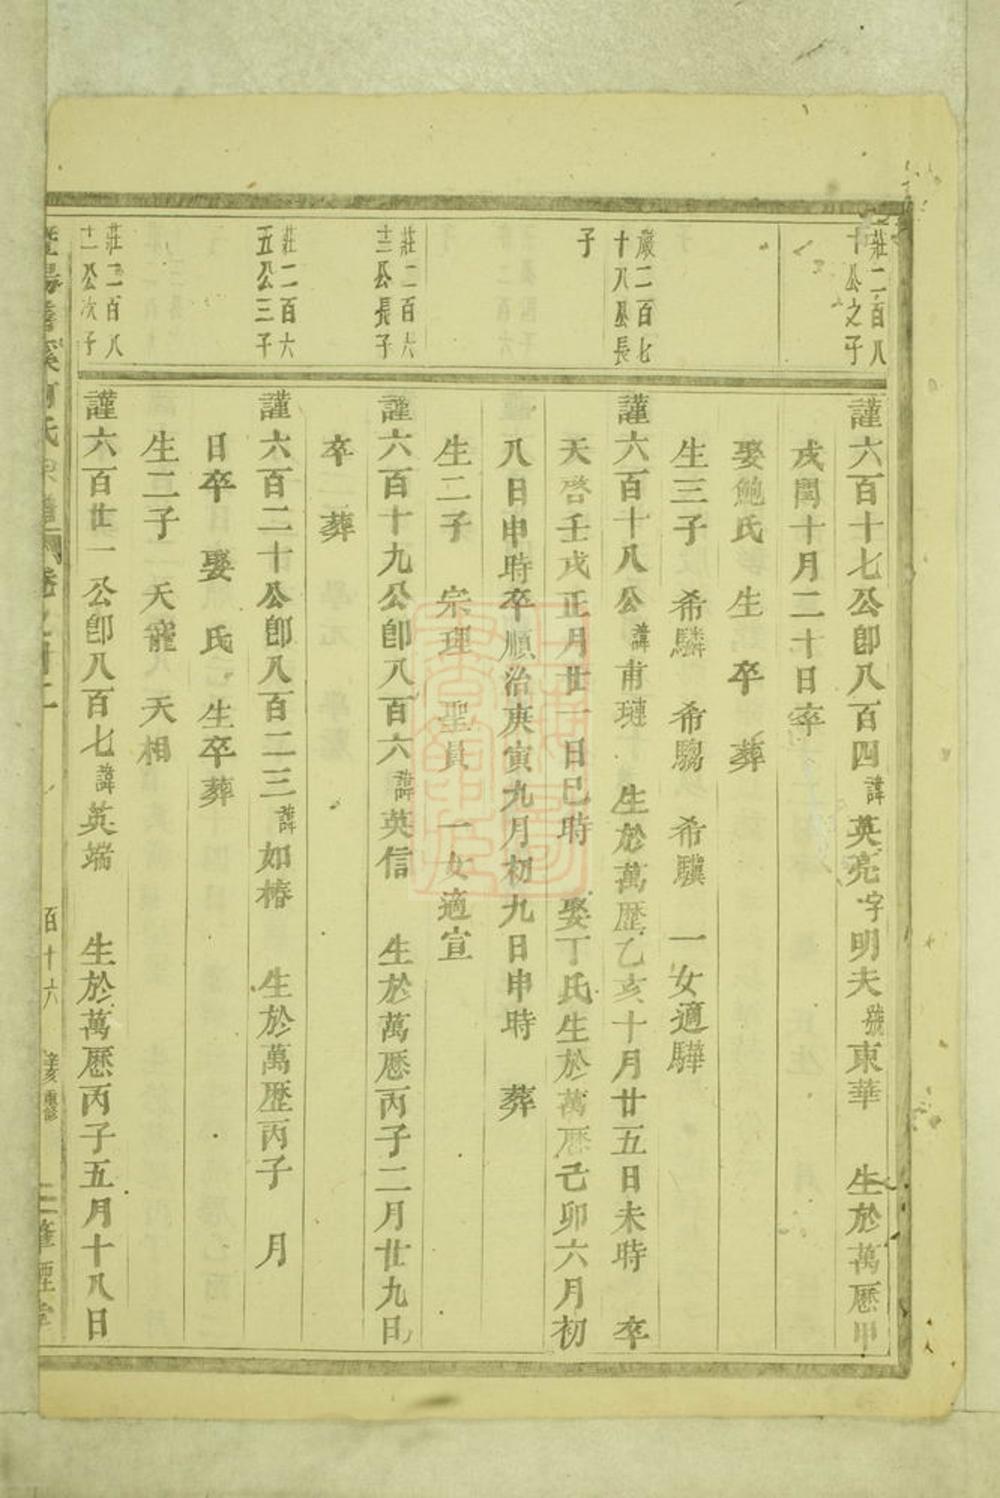 莊二百八
十公之子
謹六百十七公卽八百四諱英亮字明夫號東華　生於萬歷甲
戌閏十月二十日卒
娶鮑氏　生　卒　葬
生三子　希驎　希騶　希驥　一女適驊
嚴二百七
十八公長
子
謹六百十八公諱甫璉　生於萬歷乙亥十月廿五日未時　卒
天啓壬戌正月廿一日巳時　娶丁氏生於萬歷己卯六月初
八日申時卒順治庚寅九月初九日申時　葬
生二子　宗理　聖員　一女適宣
莊二百六
十二公長子
謹六百十九公卽八百六諱英信　生於萬歷丙子二月廿九日
卒　葬
莊二百六
五公三子
謹六百二十公卽八百二三諱如椿　生於萬歷丙子　月
日卒　娶　氏　生卒葬
生二子　天寵　天相
莊二百八
十一公次子
謹六百廿一公卽八百七諱英端　生於萬歷丙子五月十八日
百十六
辛亥重修